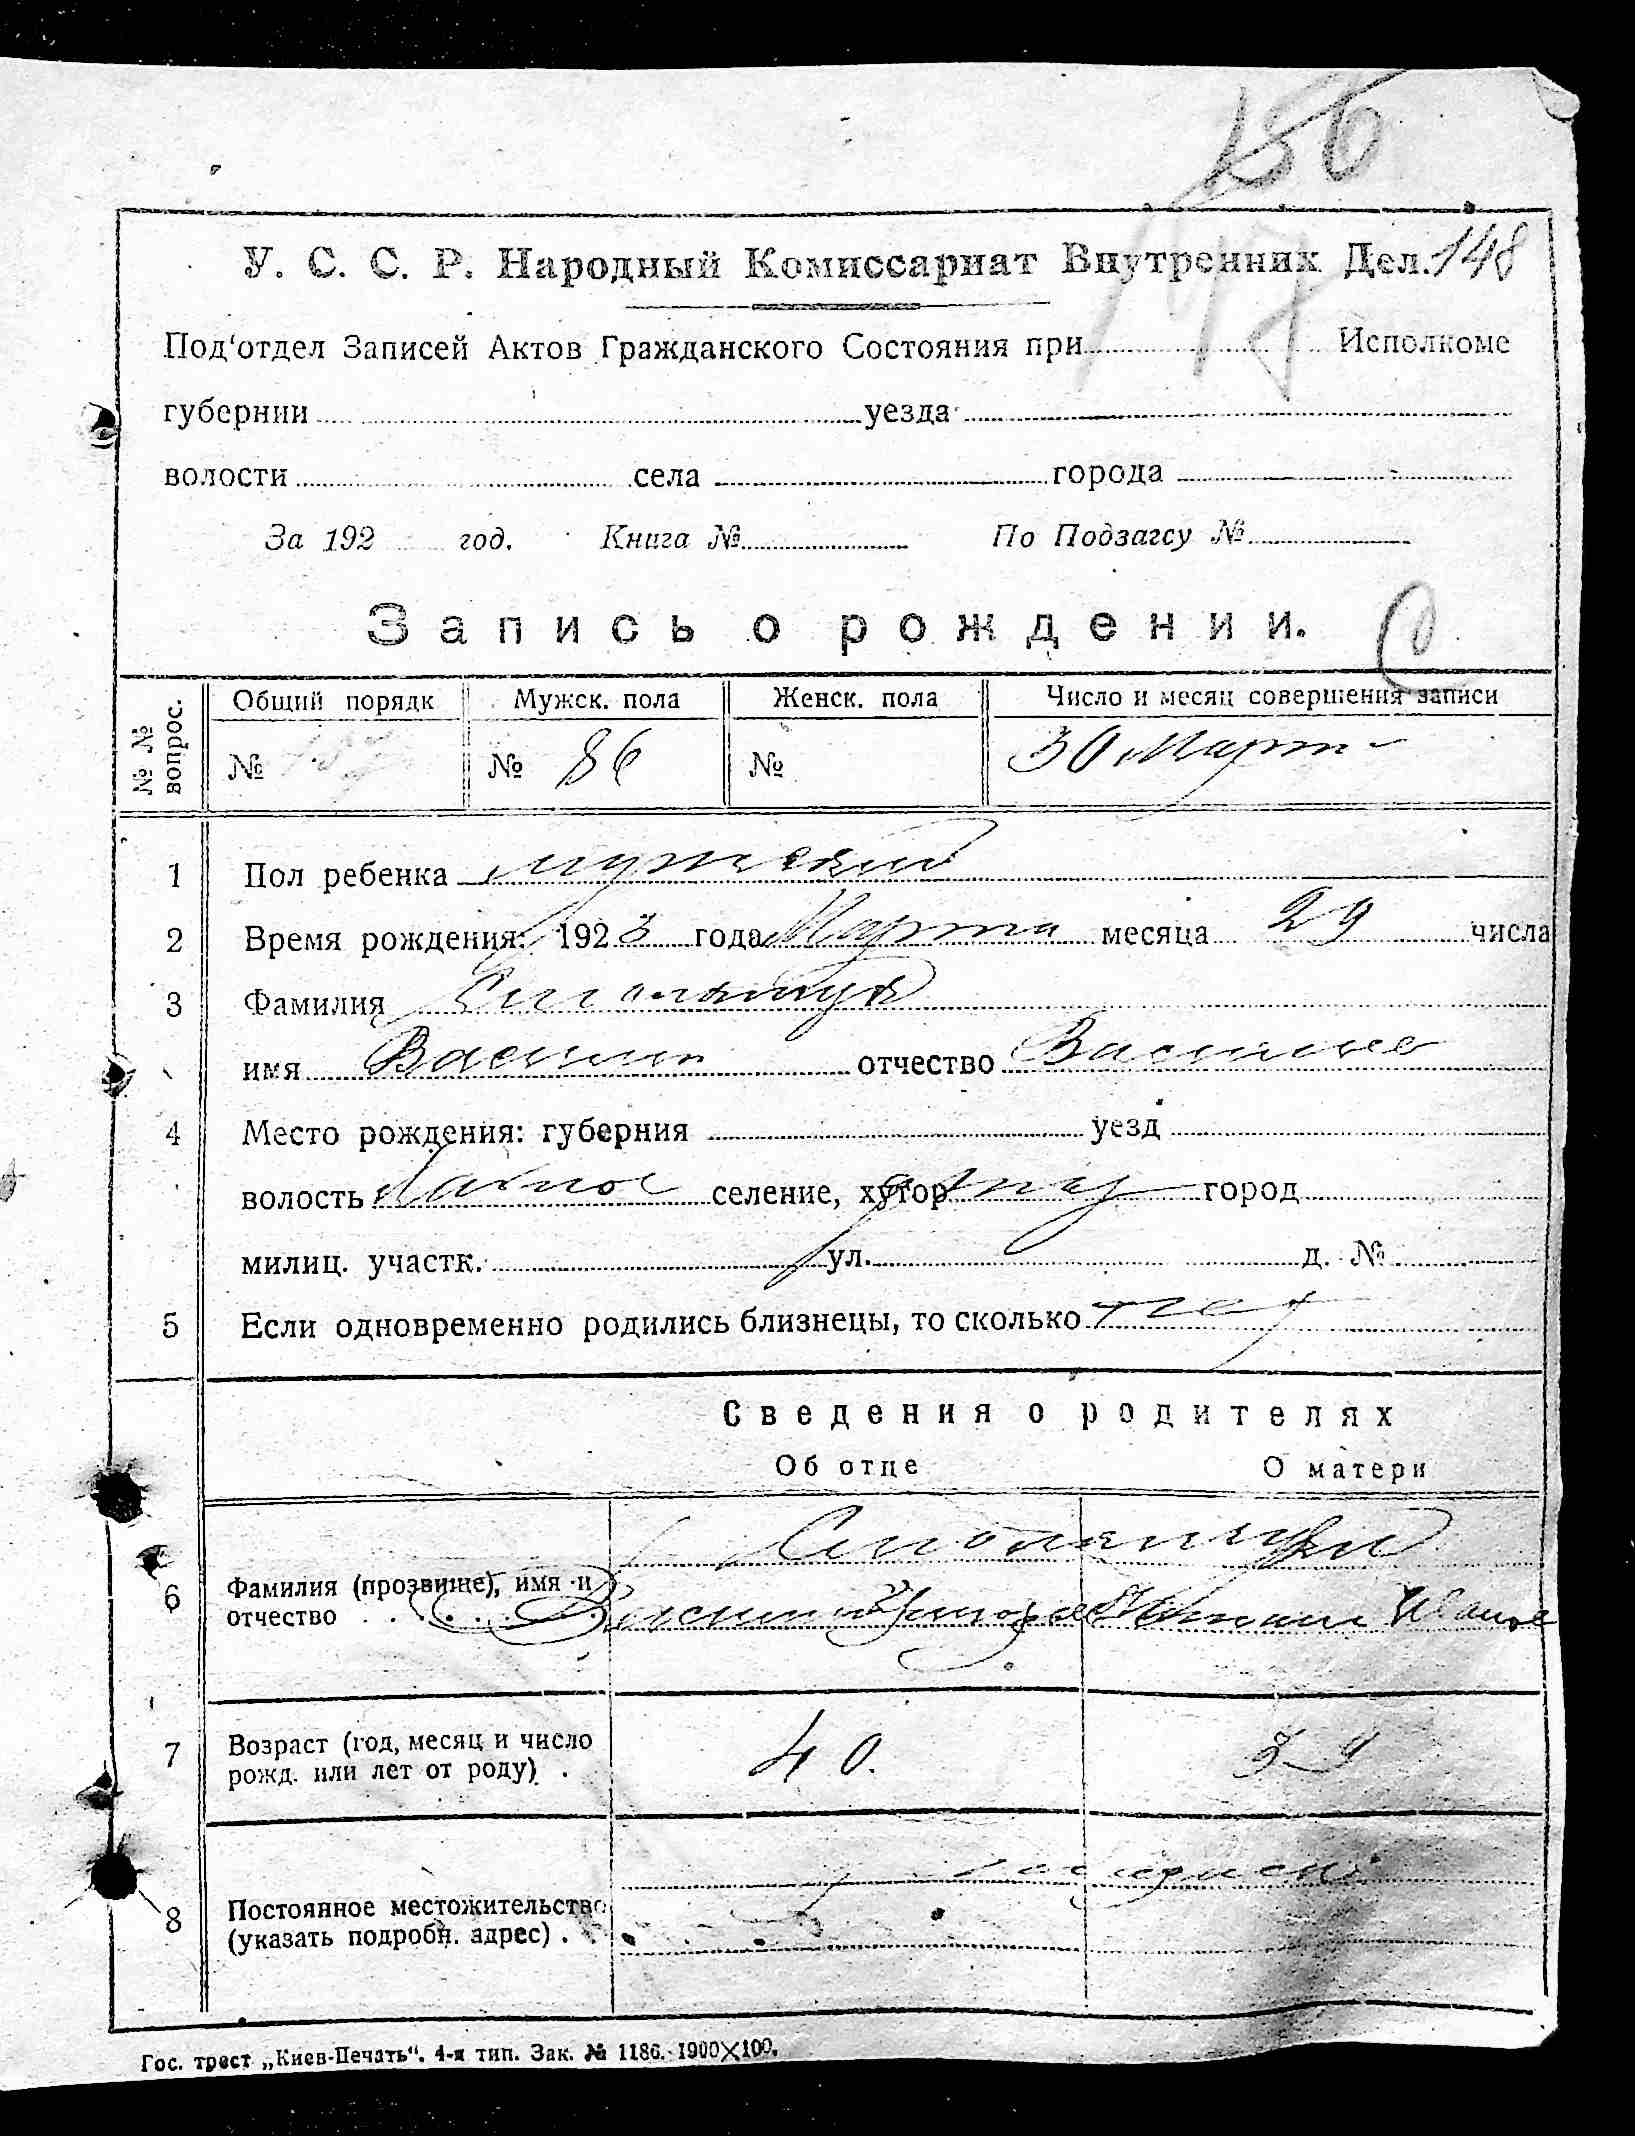 156
У. С. С. Р. Народный Комиссариат Внутренних Дел. 148
147
Под'отдел Записей Актов Гражданского Состояния при Исполкоме
губернии уезда
волости села города
За 192 год. Книга № По Подзагсу №
Запись о рождении.
№ № вопрос. Общий порядк Мужск. пола Женск. пола Число и месяц совершения записи
№ № 86 № 30 Марта
1 Пол ребенка мужский
2 Время рождения: 1923 года Марта месяца 29 числа
3 Фамилия
имя Васили отчество Василье
4 Место рождения: губерния уезд
волость селение, хутор город
милиц. участк. ул. д. №
5 Если одновременно родились близнецы, то сколько
Сведения о родителях
Об отце О матери
6 Фамилия (прозвище), имя и
отчество Иванов
7 Возраст (год, месяц и число
рожд. или лет от роду) . 40. 39
8 Постоянное местожительство
(указать подробн. адрес) .
Гос. трест „Киев-Печать“. 4-я тип. Зак. № 1186. 1900×100.